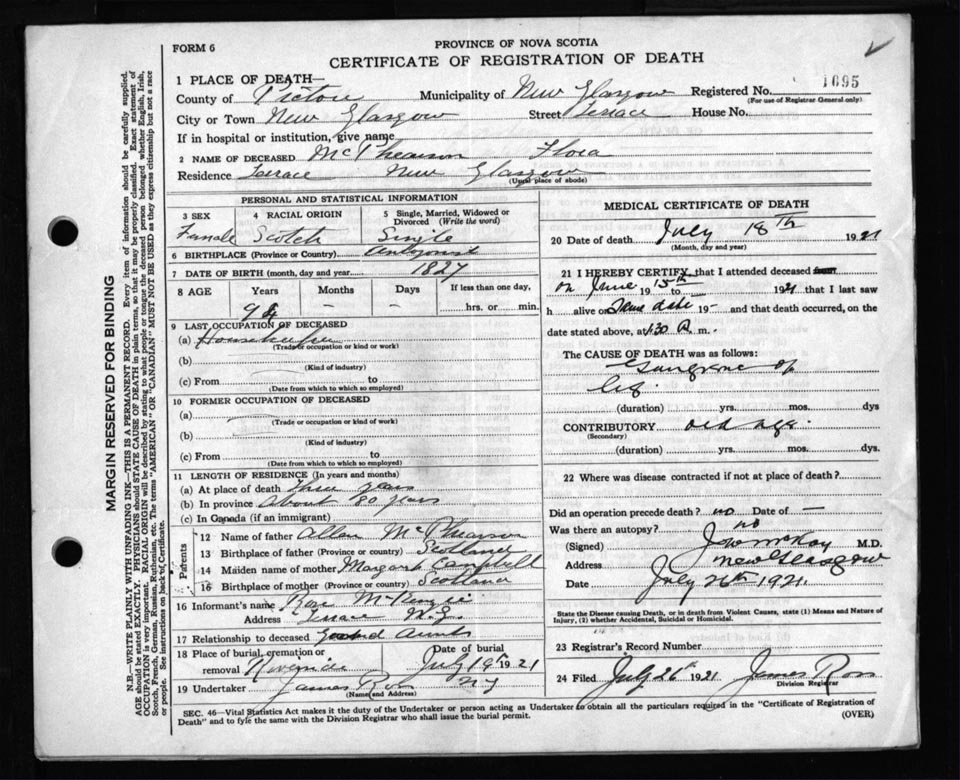 FORM 6
PROVINCE OF NOVA SCOTIA
CERTIFICATE OF REGISTRATION OF DEATH
1 PLACE OF DEATH—
County of Pictou Municipality of New Glasgow Registered No. 1095
(For use of Registrar General only)
City or Town New Glasgow Street Terrace House No.
If in hospital or institution, give name
2 NAME OF DECEASED McPhearson Flora
Residence Terrace New Glasgow
(Usual place of abode)
PERSONAL AND STATISTICAL INFORMATION
3 SEX 4 RACIAL ORIGIN 5 Single, Married, Widowed or Divorced (Write the word)
Female Scotch Single
6 BIRTHPLACE (Province or Country)
7 DATE OF BIRTH (month, day and year) 1827
8 AGE Years Months Days If less than one day,
– – hrs. or min.
9 LAST OCCUPATION OF DECEASED
(a) Housekeeper
(Trade or occupation or kind or work)
(b)
(Kind of industry)
(c) From to
(Date from which to which so employed)
10 FORMER OCCUPATION OF DECEASED
(a)
(Trade or occupation or kind of work)
(b)
(Kind of industry)
(c) From to
(Date from which to which so employed)
11 LENGTH OF RESIDENCE (In years and months)
(a) At place of death Three years
(b) In province About 80 years
(c) In Canada (if an immigrant)
Parents
12 Name of father Allan McPhearson
13 Birthplace of father (Province or country) Scotland
14 Maiden name of mother Margaret Campbell
15 Birthplace of mother (Province or country) Scotland
16 Informant's name McKenzie
Address Terrace N.G.
17 Relationship to deceased Aunt
18 Place of burial, cremation or removal Riverside Date of burial July 19th 1921
19 Undertaker James Ross N G
(Name and Address)
MEDICAL CERTIFICATE OF DEATH
20 Date of death July 18th 1921
(Month, day and year)
21 I HEREBY CERTIFY, that I attended deceased
on June 15th 19 to 1921 that I last saw
h alive on Same date 19 and that death occurred, on the
date stated above, at 1.30 A. m.
The CAUSE OF DEATH was as follows:
Gangrene of
leg.
(duration) yrs. mos. dys
CONTRIBUTORY old age.
(Secondary)
(duration) yrs. mos. dys
22 Where was disease contracted if not at place of death?
Did an operation precede death? no Date of –
Was there an autopsy? no
(Signed) J W McKay M.D.
Address New Glasgow
Date July 26th 1921.
State the Disease causing Death, or in death from Violent Causes, state (1) Means and Nature of Injury, (2) whether Accidental, Suicidal or Homicidal.
23 Registrar's Record Number
24 Filed July 26th 1921 James Ross
Division Registrar
SEC. 46—Vital Statistics Act makes it the duty of the Undertaker or person acting as Undertaker to obtain all the particulars required in the "Certificate of Registration of
Death" and to fyle the same with the Division Registrar who shall issue the burial permit. (OVER)
MARGIN RESERVED FOR BINDING
N.B.—WRITE PLAINLY WITH UNFADING INK—THIS IS A PERMANENT RECORD. Every item of information should be carefully supplied.
AGE should be stated EXACTLY. PHYSICIANS should STATE CAUSE OF DEATH in plain terms, so that it may be properly classified. Exact statement of
OCCUPATION is very important. RACIAL ORIGIN will be described by stating to what people or tongue the deceased person belonged whether English, Irish,
Scotch, French, German, Russian, Ruthenian, etc. The terms "AMERICAN" or "CANADIAN" MUST NOT BE USED as they express citizenship but not a race
or people. See instructions on back of Certificate.